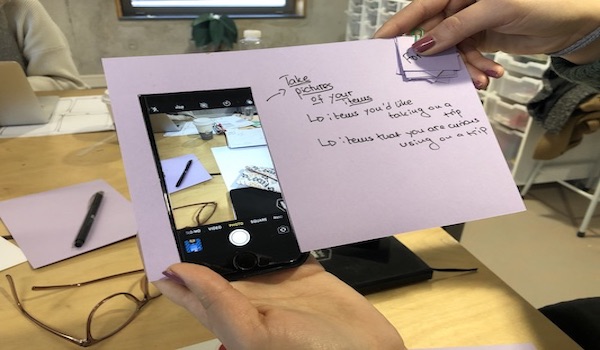 Take
pictures
of your
items
↳ items you'd like
taking on a
trip
↳ items that you are curious
using on a trip
VIDEO
PHOTO
SQUARE